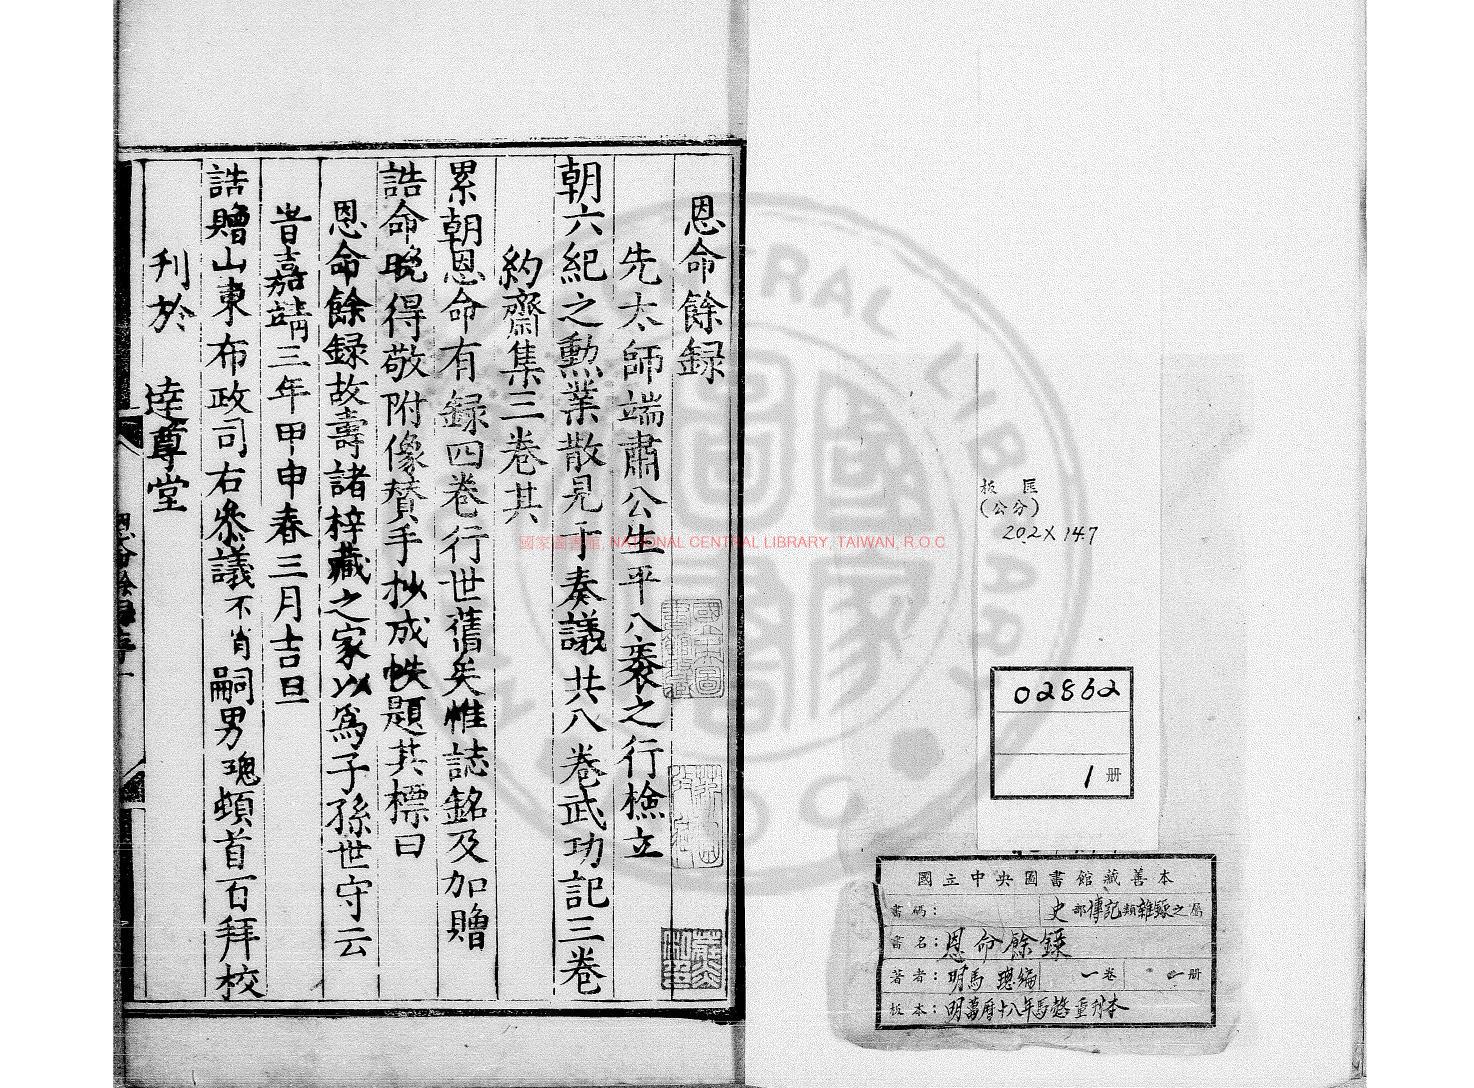 恩命餘録
先太師端肅公生平八袠之行檢立
朝六紀之勲業散見于奏議共八巻武功記三巻
約齋集三巻其
累朝恩命有録四巻行世舊矣惟誌銘及加贈
誥命晚得敬附像賛手抄成帙題其標曰
恩命餘録故壽諸梓藏之家以爲子孫世守云
旹嘉靖三年甲申春三月吉旦
誥贈山東布政司右叅議不肖嗣男璁頓首百拜校
刋於 逹尊堂
板匡
(公分)
202×147
02862
1 册
國立中央圖書館藏善本
書碼： 史部傳記類雜錄之屬
書名：恩命餘錄
著者：明馬璁編 一卷 一册
板本：明萬曆十八年馬慤重刊本
國家圖書館, NATIONAL CENTRAL LIBRARY, TAIWAN, R.O.C